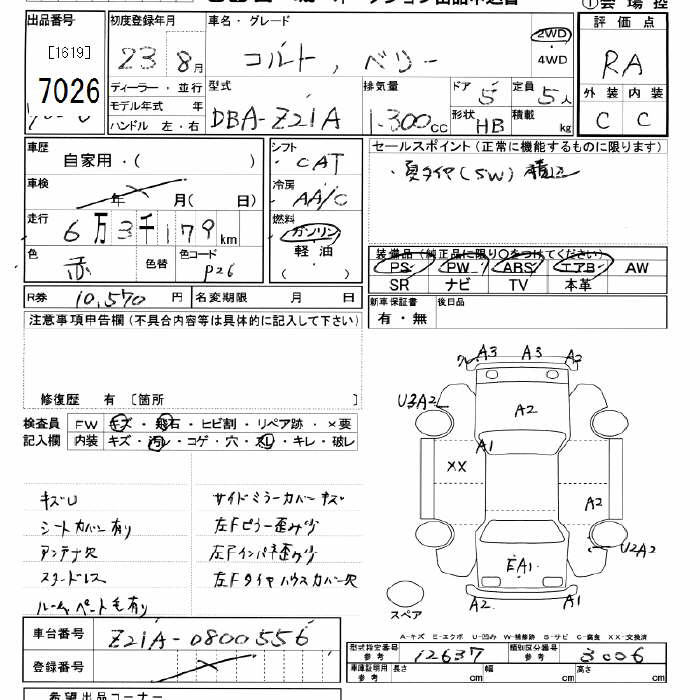 ① 会場控
出品番号
[1619]
7026
初度登録年月
23 8月
車名・グレード
コルト, ベリー
2WD
4WD
評価点
RA
外装 内装
C C
ディーラー・並行
モデル年式 年
ハンドル 左・右
型式
DBA-Z21A
排気量
1300cc
ドア
5
定員
5人
形状
HB
積載
kg
車歴
自家用・( )
シフト
CAT
セールスポイント(正常に機能するものに限ります)
・夏タイヤ(SW)積込
車検
年 月( 日)
冷房
AA/C
走行
6万3千179km
燃料
ガソリン
軽油
( ・ )
色
赤
色替
色コード
P26
装備品(純正品に限り○をつけてください)
PS PW ABS エアB AW
SR ナビ TV 本革
R券 10,570円
名変期限 月 日
新車保証書
有・無
後日品
注意事項申告欄(不具合内容等は具体的に記入して下さい)
修復歴 有[箇所 ]
検査員
記入欄
FW キズ・飛石・ヒビ割・リペア跡・×要
内装 キズ・汚レ・コゲ・穴・スレ・キレ・破レ
キズU
シートカバー有り
アンテナ欠
スタードレス
ルームペット毛有り
サイドミラーカバーキズ
左Fピラー歪み少
左Fインパネ歪み少
左Fタイヤハウスカバー欠
A3 A3 A2
U3A2
A2
A1
XX
A2
U2A2
EA1
A2 A1
スペア
A-キズ E-エクボ U-凹み W-補修跡 S-サビ C-腐食 XX-交換済
車台番号
Z21A-0800556
登録番号
型式指定番号
参考
12637
類別区分番号
参考
3006
車庫証明用
参考
長さ cm 幅 cm 高さ cm
希望出品コーナー